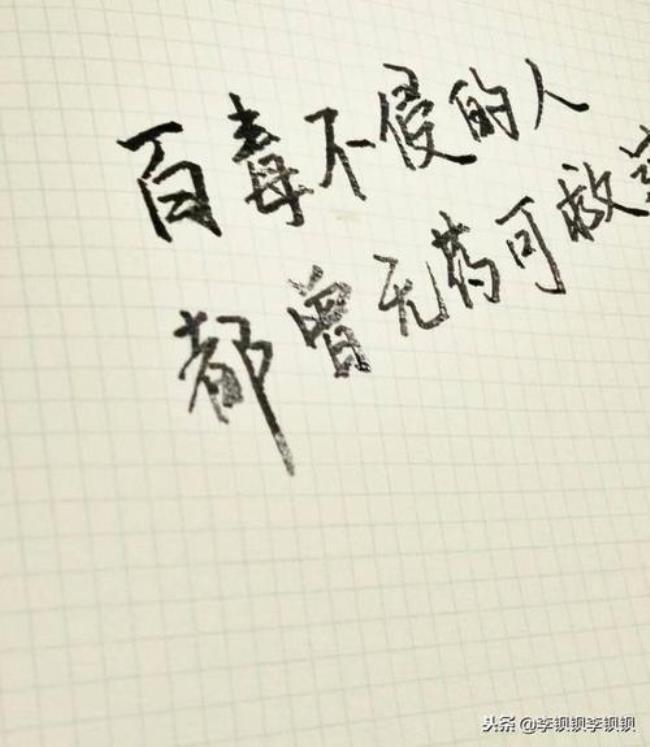 百毒不侵的人
都曾无药可救
头条 @李钡钡李钡钡